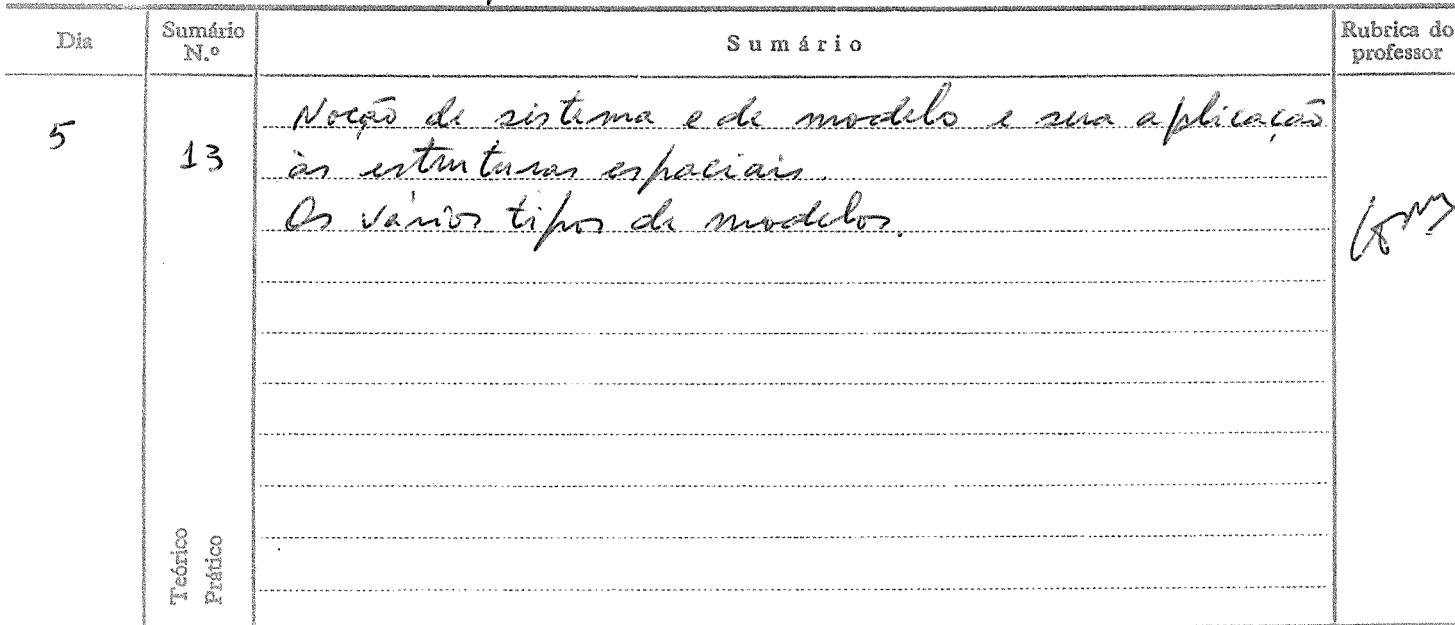 Dia
Sumário N.º
Sumário
Rubrica do professor
5
13
Noção de sistema e de modelo e sua aplicação
às estruturas espaciais.
Os vários tipos de modelos.
Teórico
Prático